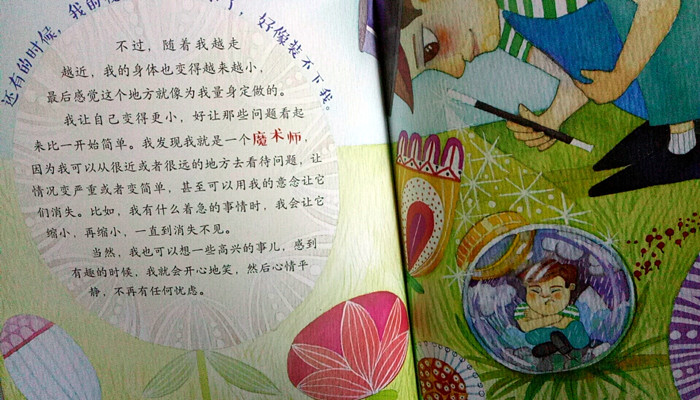 还有的时候，我的
了，好像装不下我。
不过，随着我越走
越近，我的身体也变得越来越小，
最后感觉这个地方就像为我量身定做的。
我让自己变得更小，好让那些问题看起
来比一开始简单。我发现我就是一个魔术师，
因为我可以从很近或者很远的地方去看待问题，让
情况变严重或者变简单，甚至可以用我的意念让它
们消失。比如，我有什么着急的事情时，我会让它
缩小，再缩小，一直到消失不见。
当然，我也可以想一些高兴的事儿，感到
有趣的时候，我就会开心地笑，然后心情平
静，不再有任何忧虑。